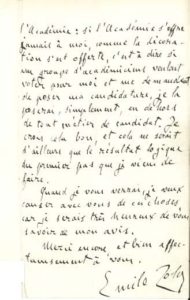 l'Académie : si l'Académie s'offre
jamais à moi, comme la décora-
tion s'est offerte, c'est à dire si
un groupe d'académiciens voulait
voter pour moi et me demandait
de poser ma candidature, je la
poserai, simplement, en dehors
de tout métier de candidat. Je
crois cela bon, et cela ne serait
d'ailleurs que le résultat logique
du premier pas que je viens de
faire.
Quand je vous verrai, je veux
causer avec vous de ces choses,
car je serais très heureux de
savoir mon avis.
Merci encore et bien affec-
tueusement à vous.
Emile Zola